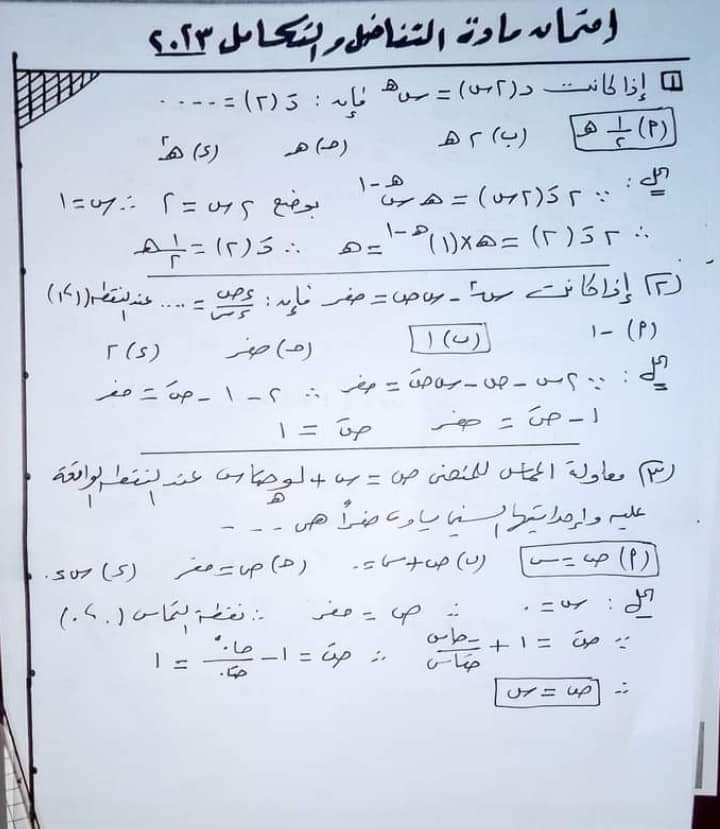 امتحان مادة التفاضل والتكامل ٢٠٢٣
١ إذا كانت د(٢س) = س^هـ فإن : دَ(٢) = ....
(أ) ١/٢ هـ (ب) ٢هـ (حـ) هـ (د) هـ^٢
الحل : ∵ ٢دَ(٢س) = هـ س^(هـ-١) بوضع ٢س = ٢ ∴ س = ١
∴ ٢دَ(٢) = هـ×(١)^(هـ-١) = هـ ∴ دَ(٢) = ١/٢ هـ
(٢) إذا كانت س^٢ - س ص = صفر فإن : ءص/ءس = .... عند النقطة (١،١)
(أ) -١ (ب) ١ (حـ) صفر (د) ٢
الحل : ∵ ٢س - ص - س صَ = صفر ∴ ٢ - ١ - صَ = صفر
١ - صَ = صفر صَ = ١
(٣) معادلة المماس للمنحنى ص = س + لو_هـ حتاس عند النقطة الواقعة
عليه وإحداثيها السيني يساوى صفراً هى ....
(أ) ص = س (ب) ص + س = ٠ (حـ) ص = صفر (د)
الحل : س = ٠ ∴ ص = صفر ∴ نقطة التماس (٠،٠)
∵ صَ = ١ + -حاس/حتاس ∴ صَ = ١ - حا٠°/حتا٠ = ١
∴ ص = س